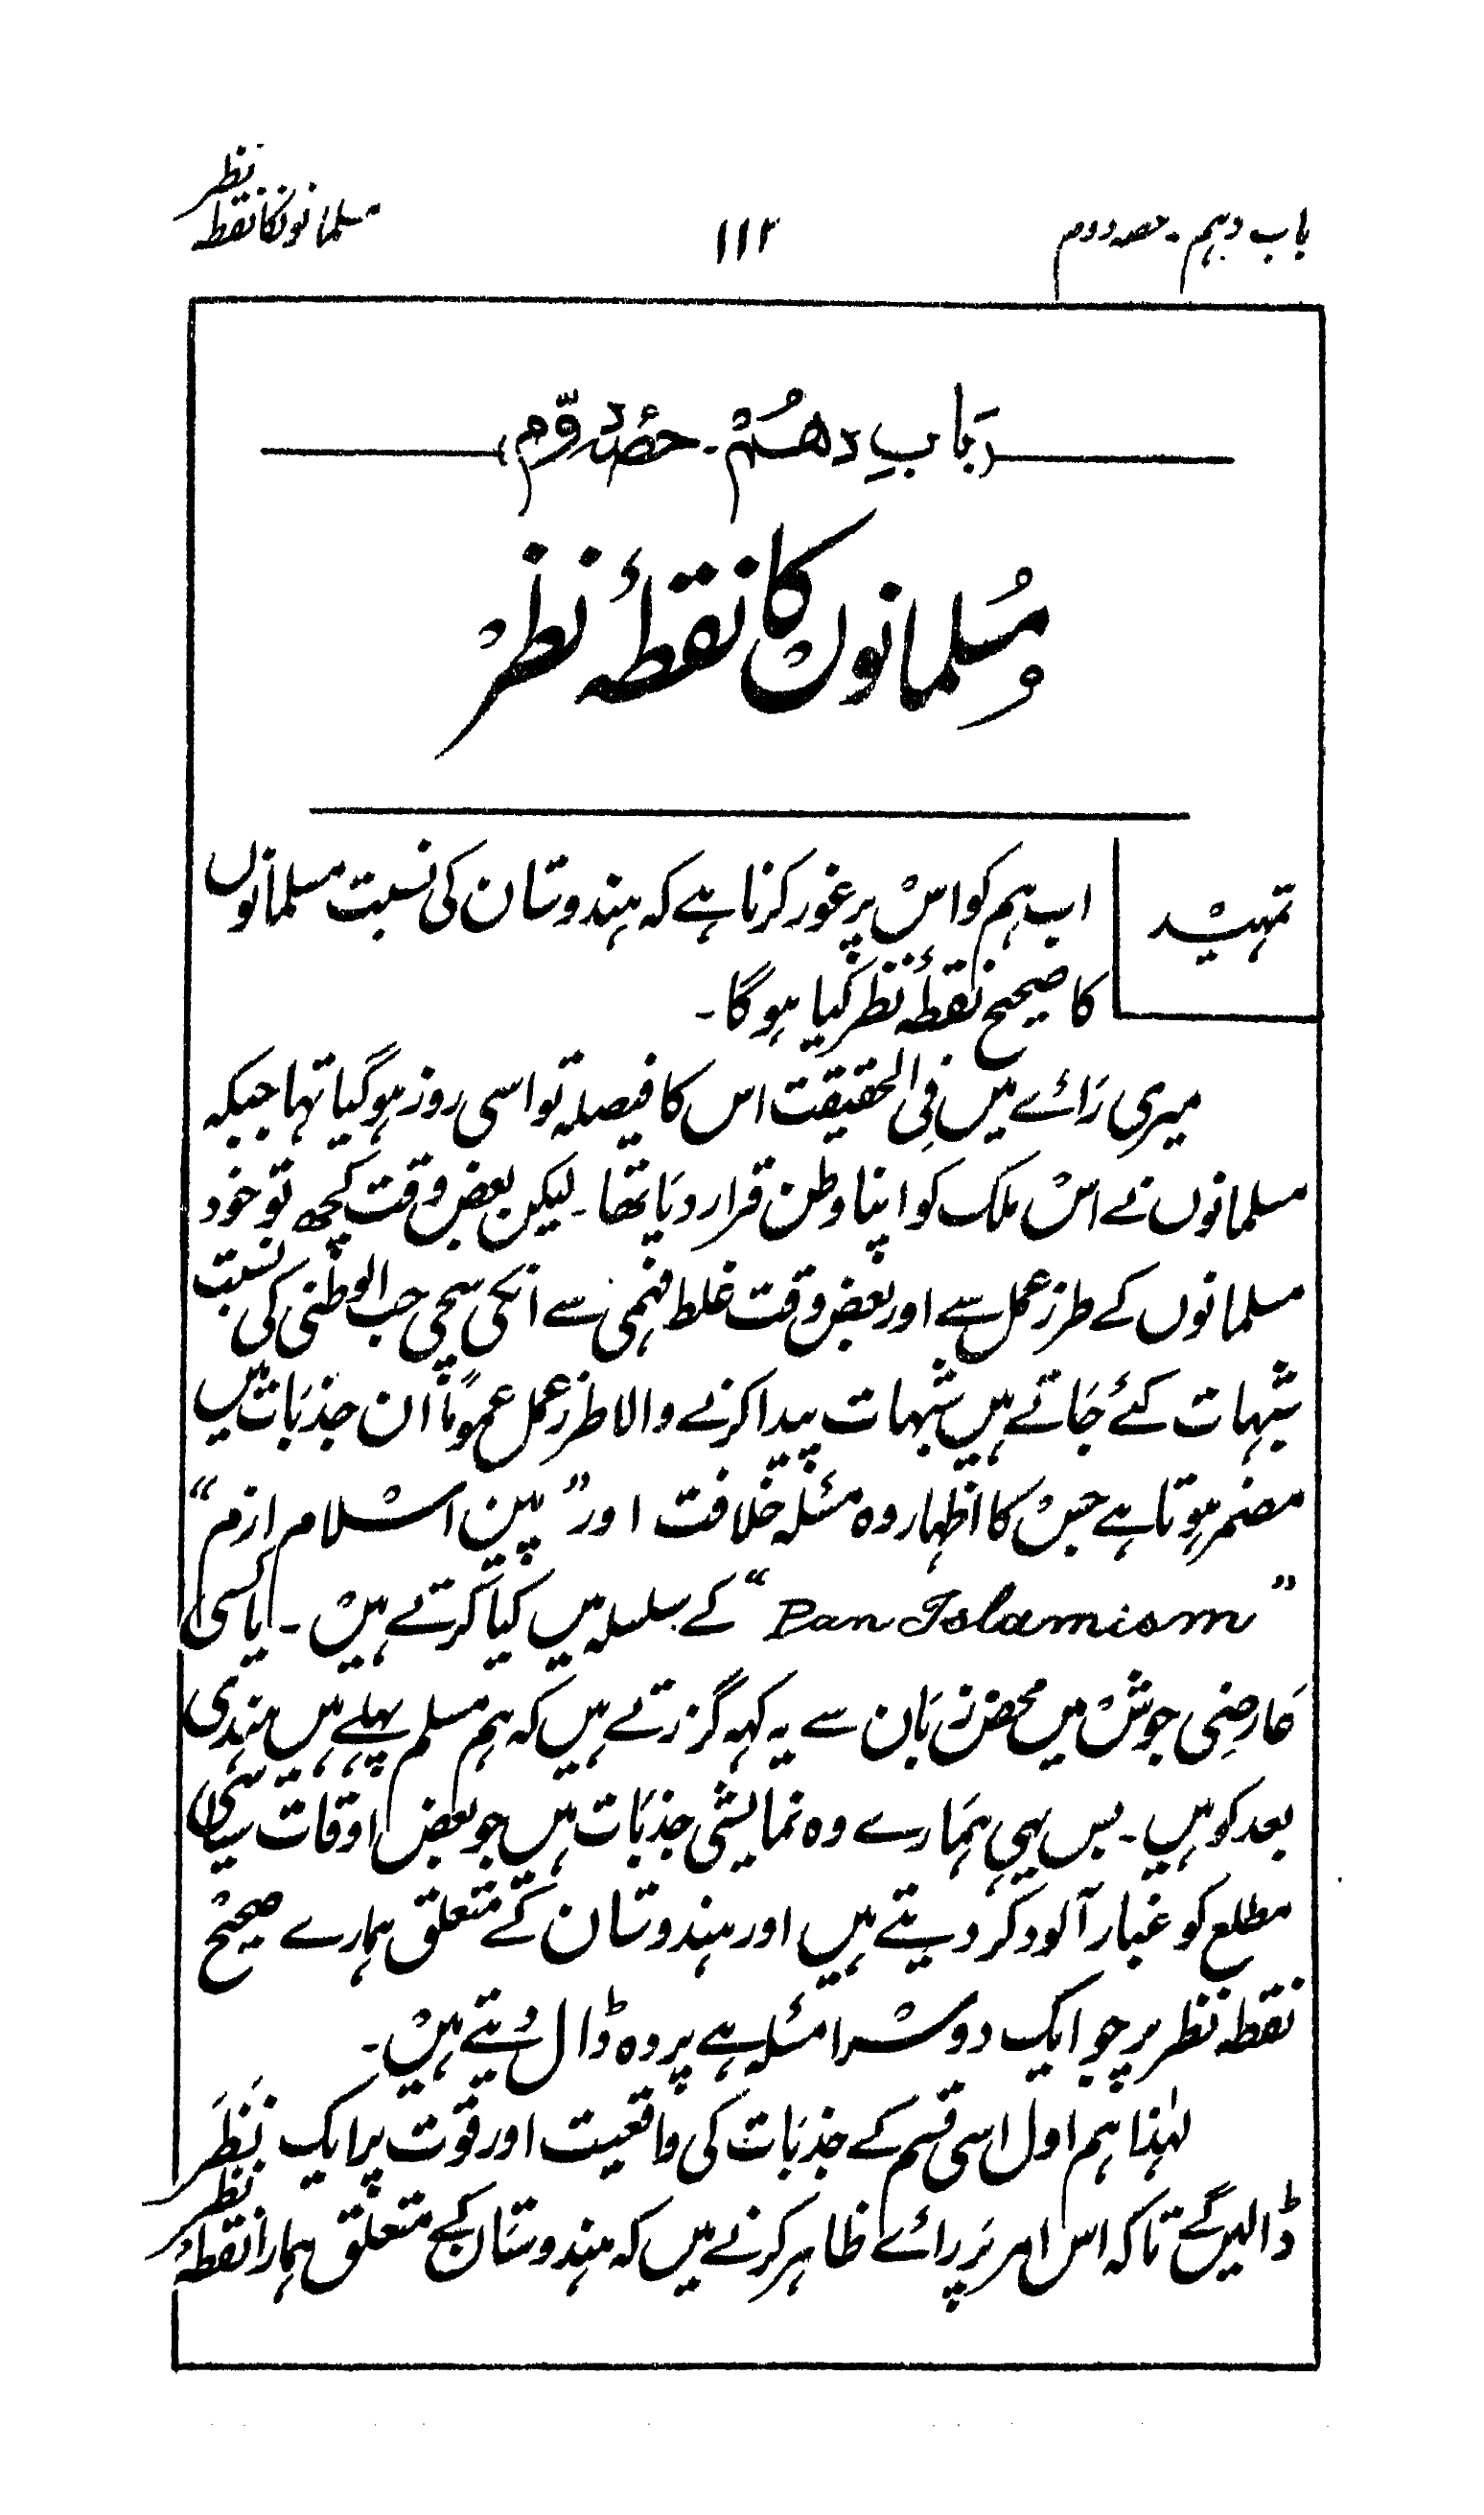 باب دہم۔ حصہ دوم ۱۱۲ مسلمانوں کا نقطہ نظر
(بَابِ دھُم۔ حصّہ دوّم)
مُسلمانوں کا نقطۂ نظر
تمہید
اب ہم کو اس پر غور کرنا ہے کہ ہندوستان کی نسبت مسلمانوں
کا صحیح نقطۂ نظر کیا ہوگا۔
میری رائے میں فی الحقیقت اس کا فیصلہ تو اسی روز ہوگیا تہا جبکہ
مسلمانوں نے اس ملک کو اپنا وطن قرار دیا تھا۔ لیکن بعض وقت کچھ تو خود
مسلمانوں کے طرز عمل سے اور بعض وقت غلط فہمی سے انکی سچی حب الوطنی کی نسبت
شبہات کئے جاتے ہیں شبہات پیدا کرنے والا طرز عمل عموماً ان جذبات میں
مضمر ہوتا ہے جس کا اظہار وہ مسئلہ خلافت اور "پین اسلام ازم"
"Pan Islamism" کے سلسلہ میں کیا کرتے ہیں۔ یا کسی
عارضی جوش میں محض زبان سے یہ کہہ گزرتے ہیں کہ ہم مسلم پہلے ہیں ہندی
بعد کو ہیں۔ بس یہی ہمارے وہ نمایشی جذبات ہیں جو بعض اوقات سیاسی
مطلع کو غبار آلود کر دیتے ہیں اور ہندوستان کے متعلق ہمارے صحیح
نقطہ نظر پر جو ایک دوسرا مسئلہ ہے پردہ ڈال دیتے ہیں۔
لہٰذا ہم اول اسی قسم کے جذبات کی واقعیت اور قوت پر ایک نظر
ڈالیں گے تاکہ اس امر پر رائے ظاہر کرنے میں کہ ہندوستان کے متعلق ہمارا نقطۂ نظر